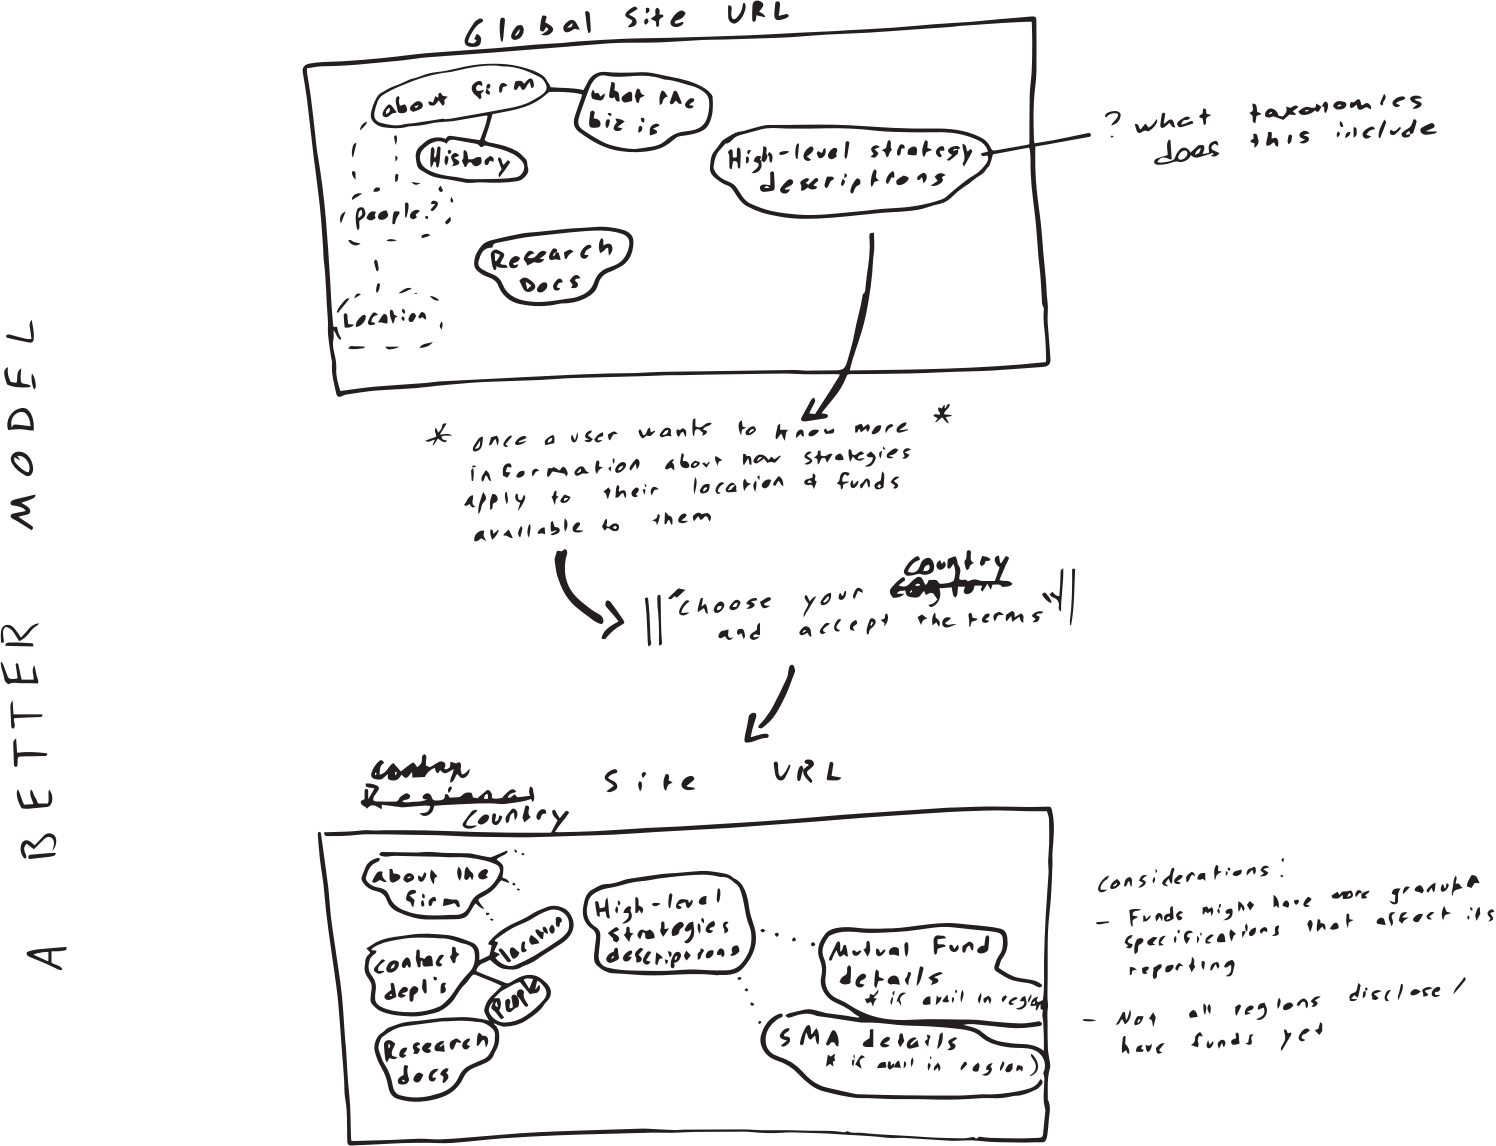 A BETTER MODEL
Global Site URL
about firm
what the
biz is
History
People?
Location
Research
Docs
High-level strategy
descriptions
? what taxonomies
does this include
* once a user wants to know more *
information about how strategies
apply to their location & funds
available to them
country
"Choose your
and accept the terms"
Regional
Site URL
country
about the
firm
contact
dept's
Location
People
Research
docs
High-level
strategies
descriptions
Mutual Fund
details
* if avail in region
SMA details
* if avail in region)
Considerations:
- Funds might have more granular
specifications that affect its
reporting
- Not all regions disclose/
have funds yet